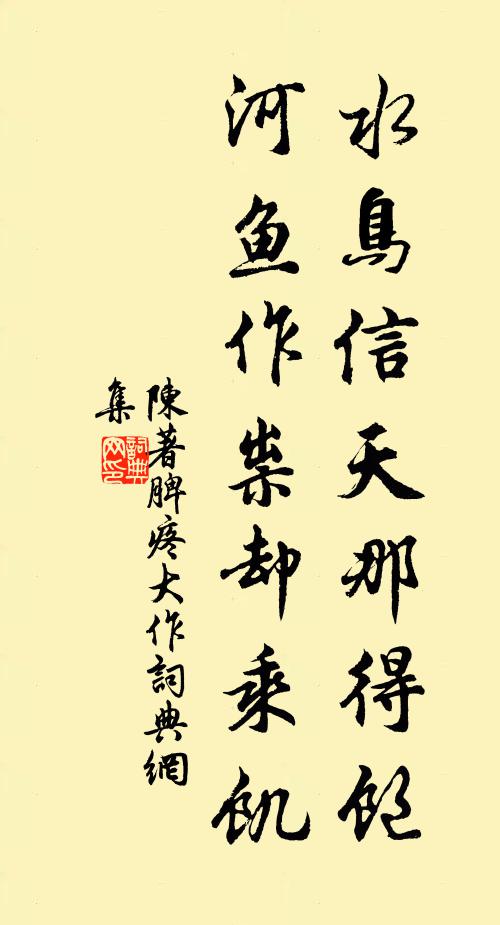 水鳥信天那得飽
河魚作祟却乘飢
陳著脾疼大作詞典網
集
詞典網印